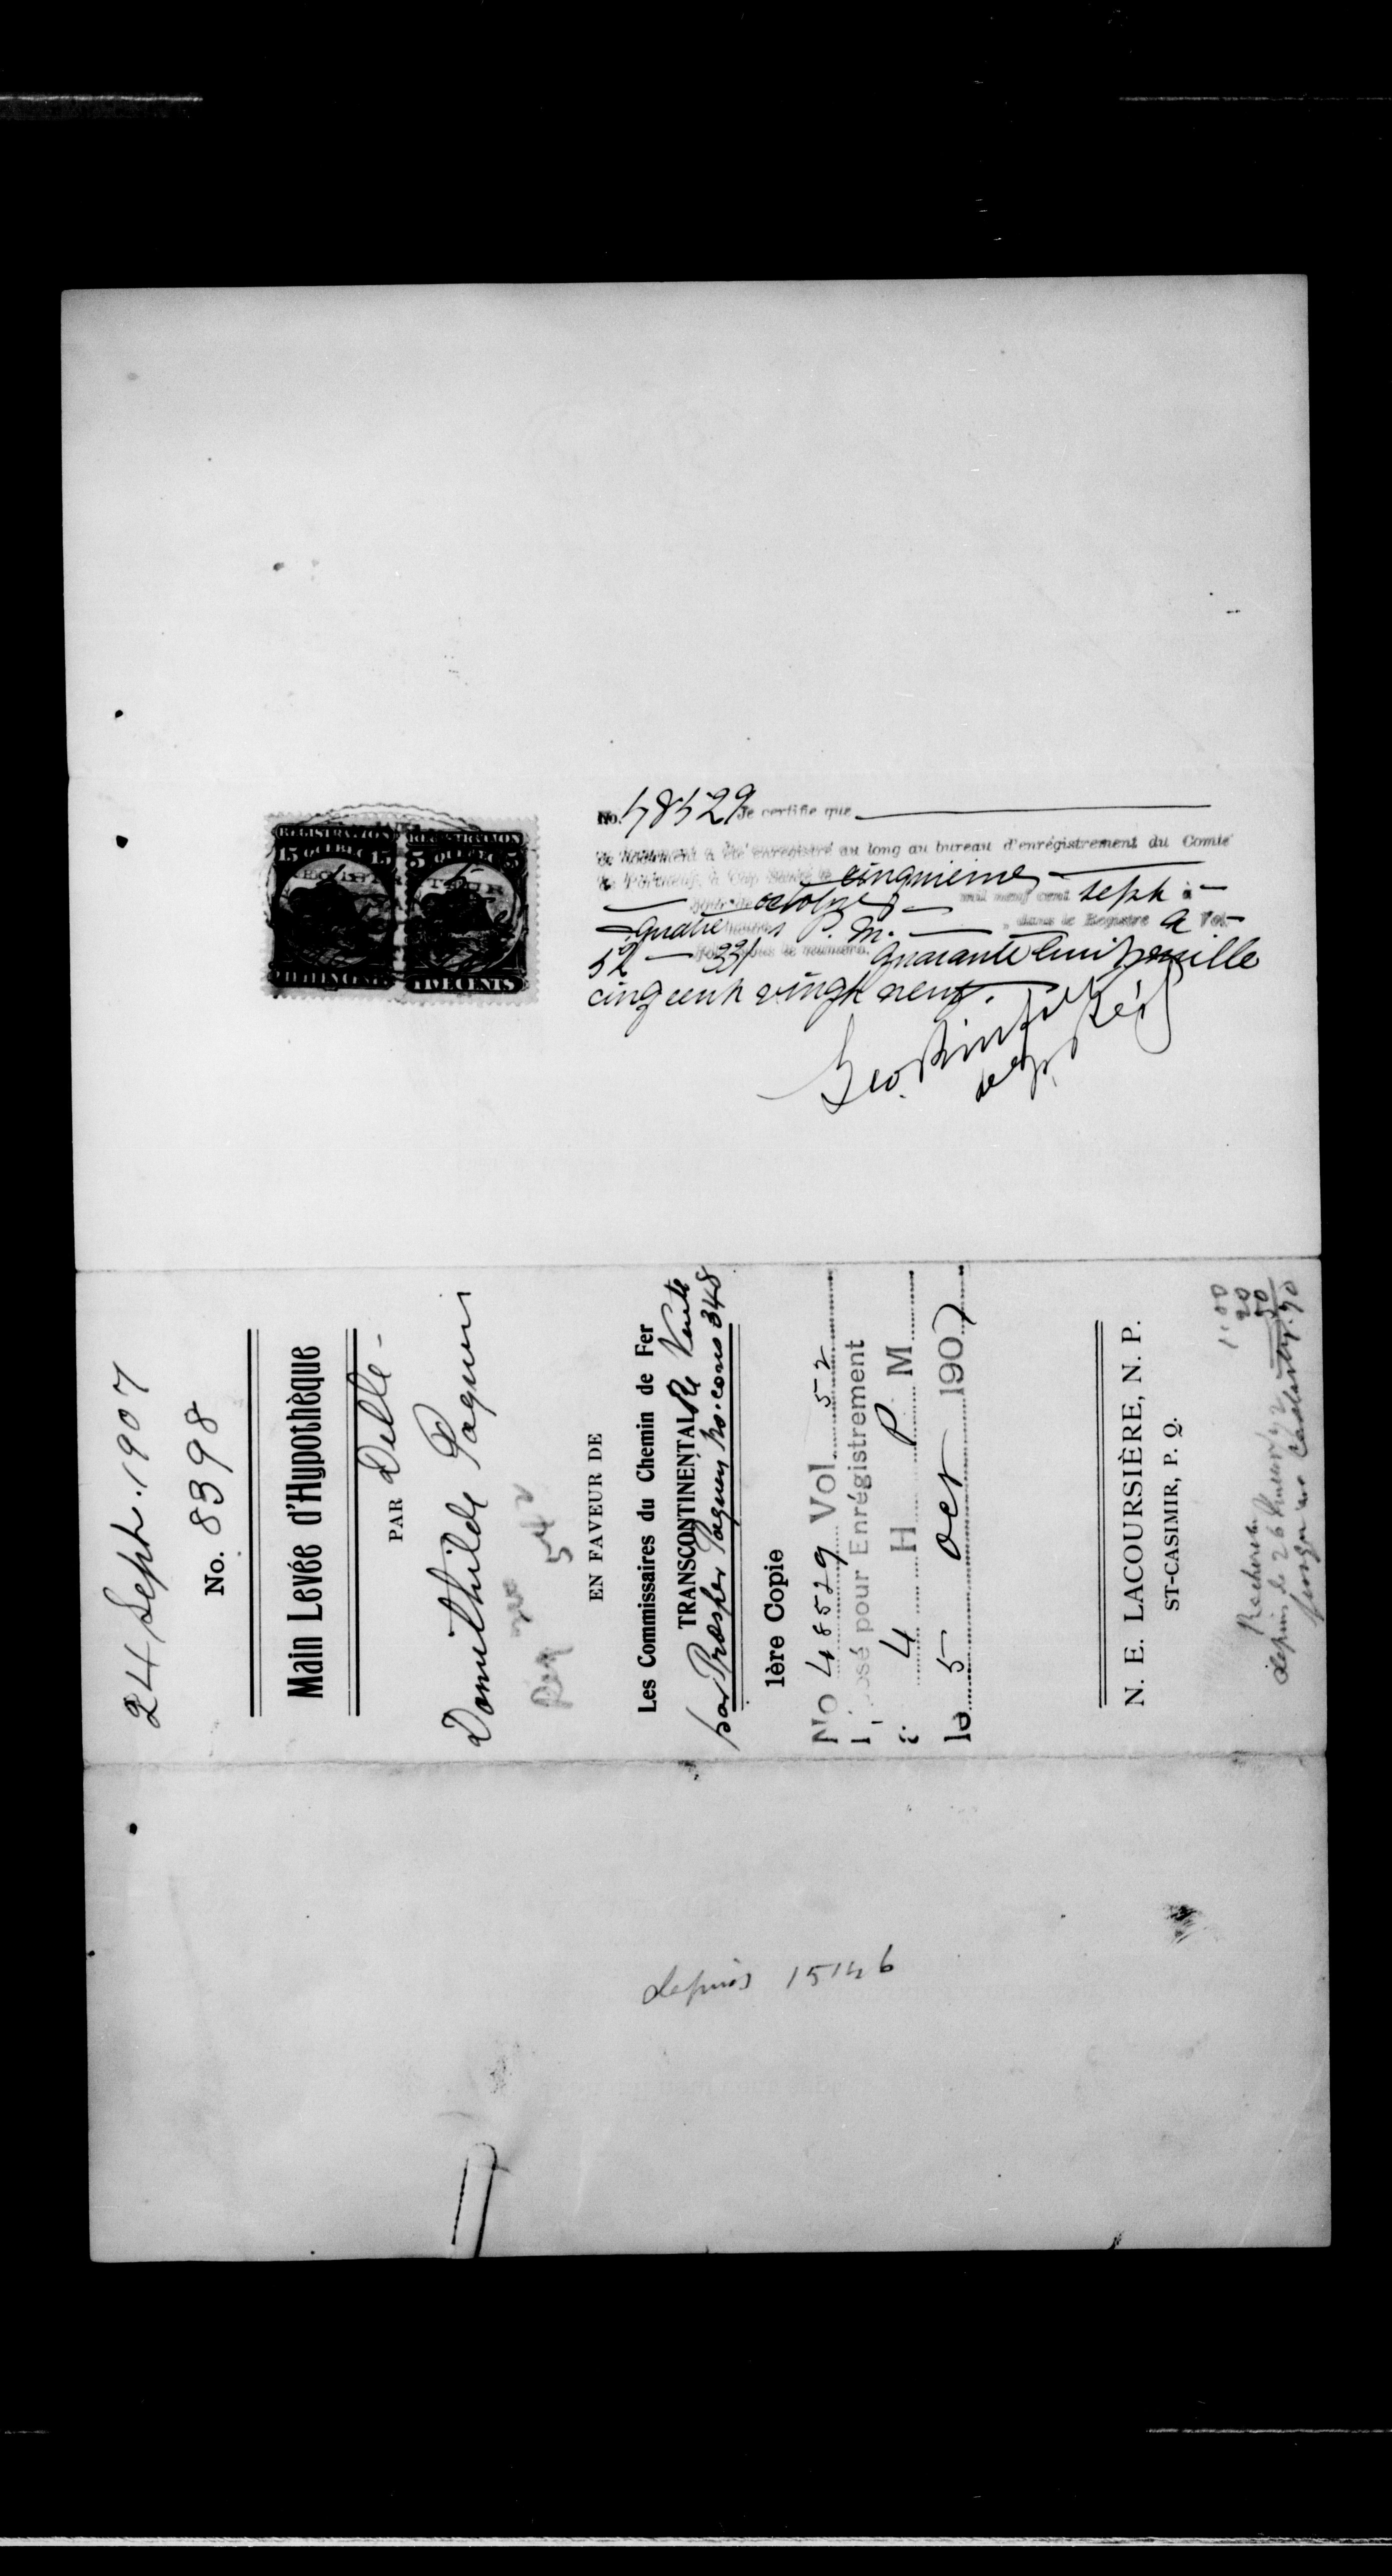 REGISTRATION
15 QUEBEC 15
REGISTRATION
5 QUEBEC 5
No. 48529 Je certifie que
ce document a été enregistré au long au bureau d'enrégistrement du Comté
de Portneuf, à Cap Santé le cinquième
jour de octobre mil neuf cent sept à
quatre heures P. M. dans le Registre A Vol.
52 331 sous le numéro quarante huit mille
cinq cent vingt neuf.
Geo.
dep. Rég
24 Sept. 1907
No. 8398
Main Levée d'Hypothèque
PAR Delle
Domithilde Paquin
Reg 542
EN FAVEUR DE
Les Commissaires du Chemin de Fer
TRANSCONTINENTAL Re Vente
par Prosper Paquin No. cons 348
1ère Copie
No 48529 Vol 52
Déposé pour Enrégistrement
à 4 H P M
le 5 oct 1907
N. E. LACOURSIÈRE, N. P.
ST-CASIMIR, P. Q.
1.00
20
50
Recherche
depuis le 26
depuis 15146